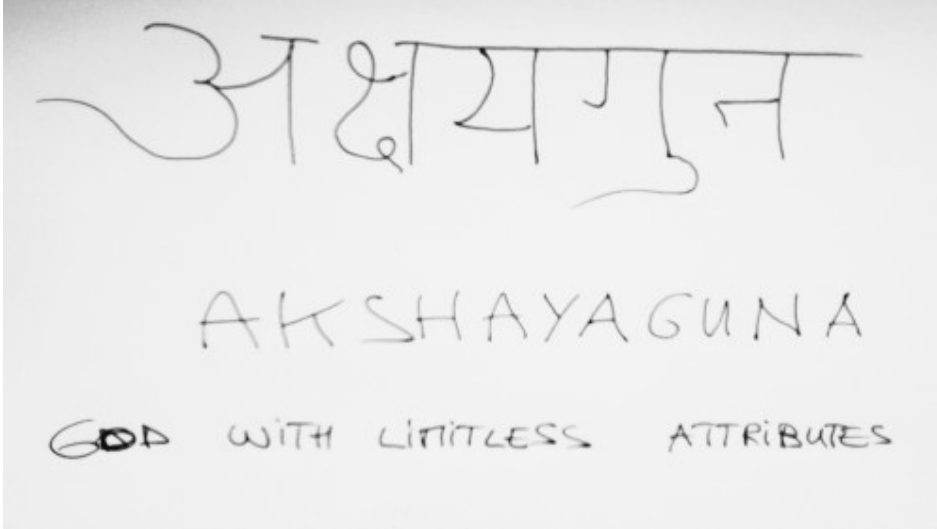 अक्षयगुन
AKSHAYAGUNA
GOD WITH LIMITLESS ATTRIBUTES